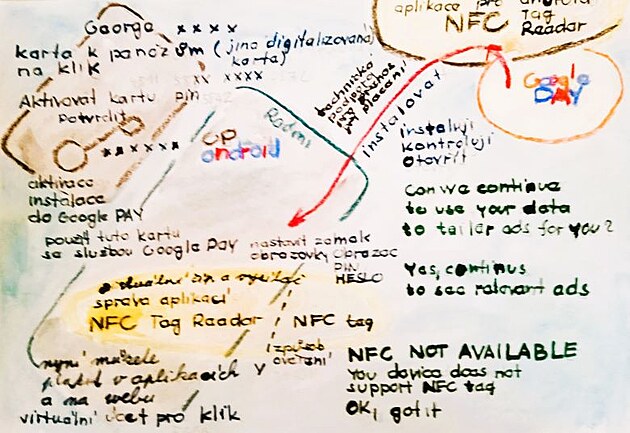 George xxxx
karta k penězům (jina digitalizovaná
na klik karta)
xx xxxx
Aktivovat kartu pin
potvrdit
xxxxxx
op
android
Radeni
aktivace
instalace
do Google PAY
použít tuto kartu
se službou Google PAY
nastavit zamek
obrazovky Obrazec
PIN
HESLO
správa aplikací
NFC Tag Reader NFC tag
1 způsob
ověření
nyní můžete
platit v aplikacích
a na webu
virtuální účet pro klik
aplikace pro android
NFC Tag
Reader
Google
PAY
technická
podpora
placení
instalovat
instaluji
kontroluji
otevřít
Can we continue
to use your data
to tailer ads for you?
Yes, continus
to see relevant ads
NFC NOT AVAILABLE
You device does not
support NFC tag
OK, got it